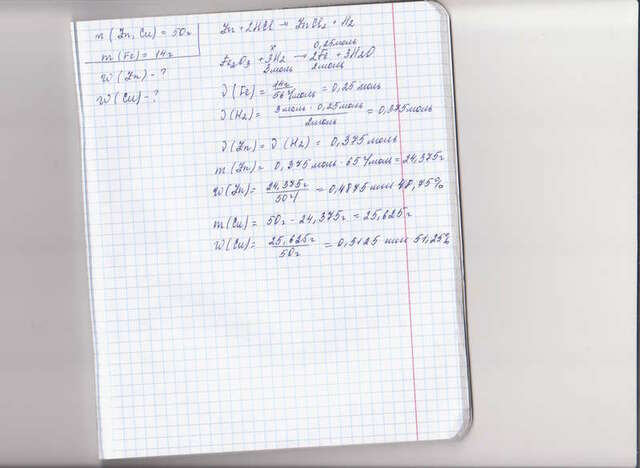 m (Zn, Cu) = 50г
m (Fe) = 14г
w (Zn) - ?
w (Cu) - ?
Zn + 2HCl → ZnCl2 + H2
x 0,25моль
Fe2O3 + 3H2 → 2Fe + 3H2O
3моль 2моль
ν (Fe) = 14г / 56 г/моль = 0,25 моль
ν (H2) = 3моль · 0,25моль / 2моль = 0,375моль
ν (Zn) = ν (H2) = 0,375моль
m (Zn) = 0,375моль · 65 г/моль = 24,375г
w (Zn) = 24,375г / 50г = 0,4875 или 48,75%
m (Cu) = 50г - 24,375г = 25,625г
w (Cu) = 25,625г / 50г = 0,5125 или 51,25%